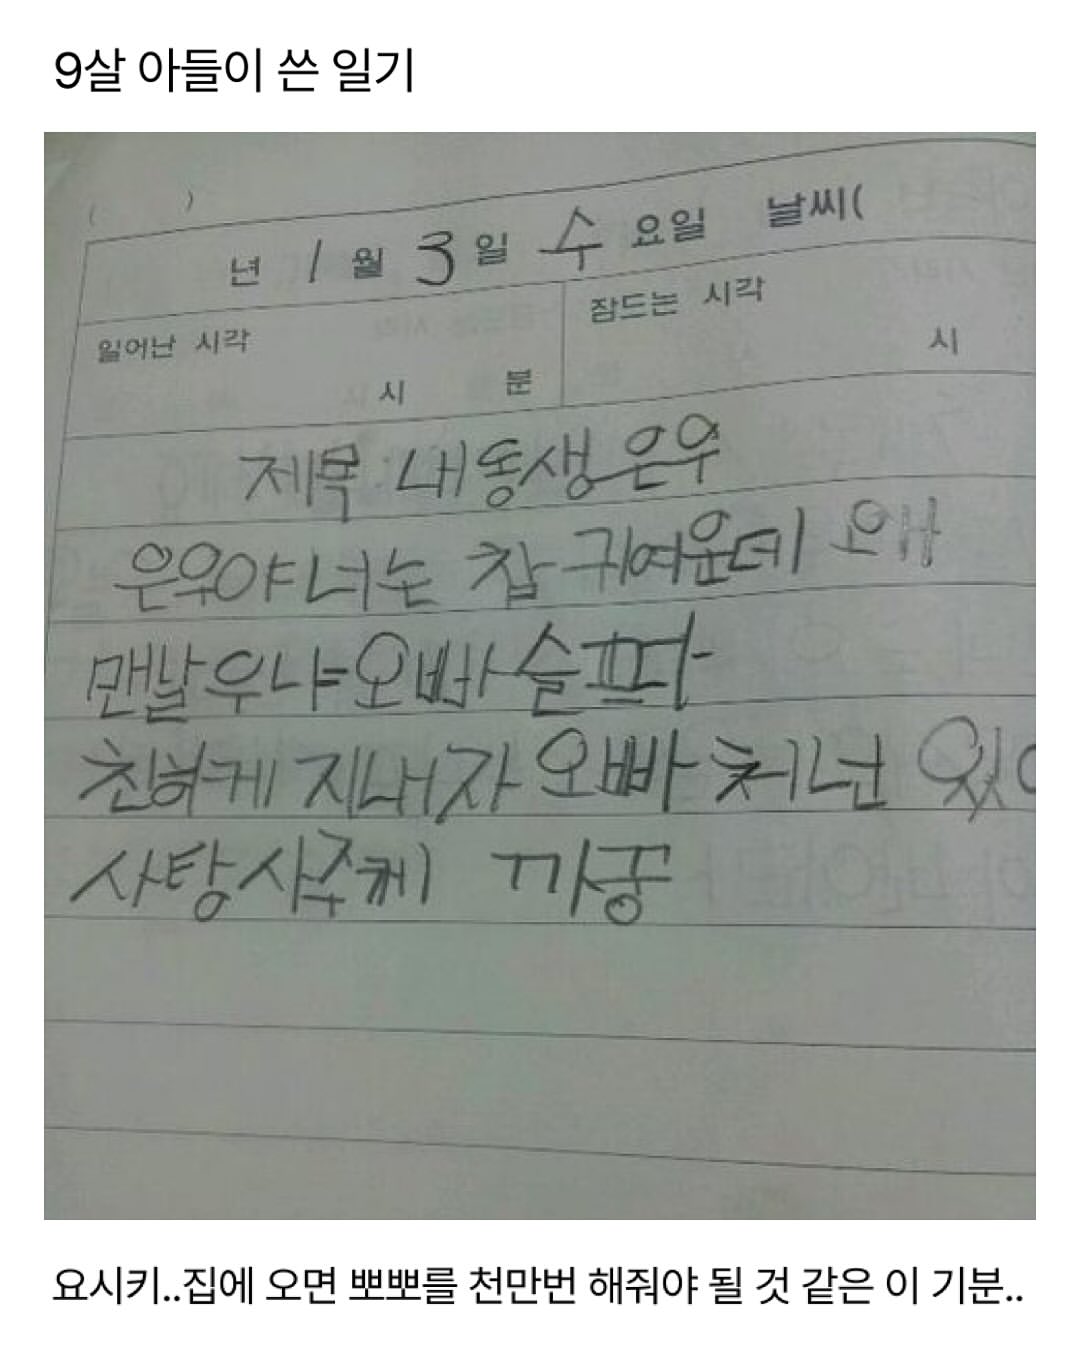 9살 아들이 쓴 일기
( )
년 1 월 3 일 수 요일 날씨(
일어난 시각
잠드는 시각
시 분
시
제목 내동생은우
은우야 너는 참 귀여운데 왜
맨날 우냐 오빠 슬퍼
친하게 지내자 오빠 처넌 있어
사탕사주께 까꿍
요시키..집에 오면 뽀뽀를 천만번 해줘야 될 것 같은 이 기분..